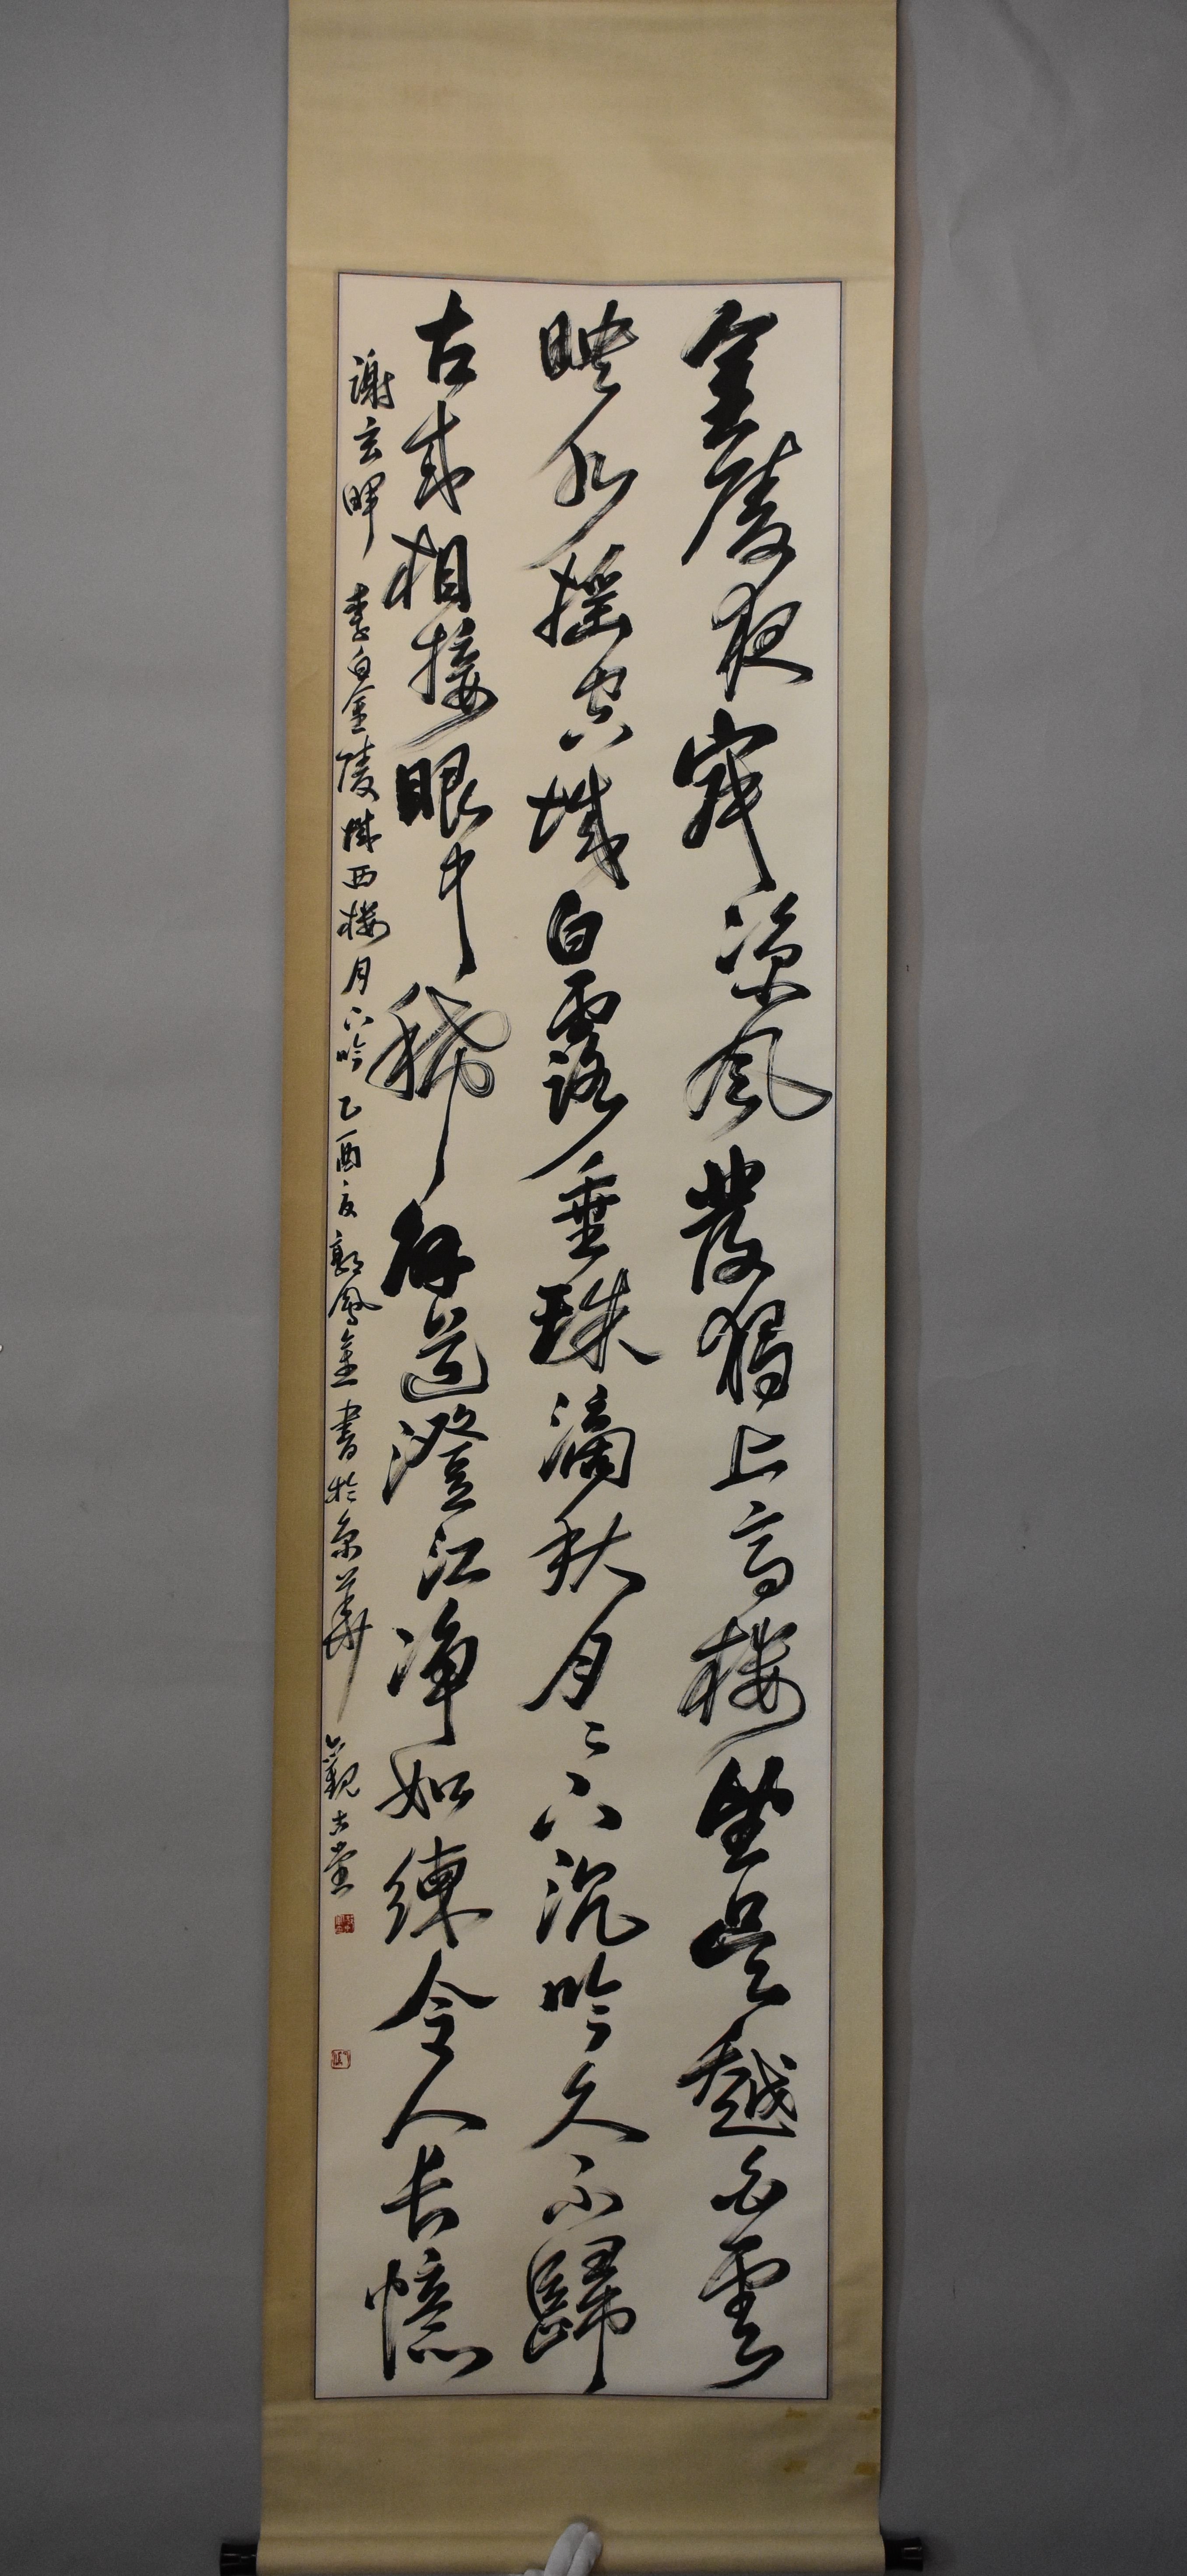 金陵夜寂凉风發獨上高樓望吳越白雲
映水摇空城白露垂珠滴秋月二下沉吟久不歸
古來相接眼中稀解道澄江净如練令人長憶
謝玄暉 李白金陵城西樓月下吟 乙酉夏郭鳳金書於京華 觀古堂